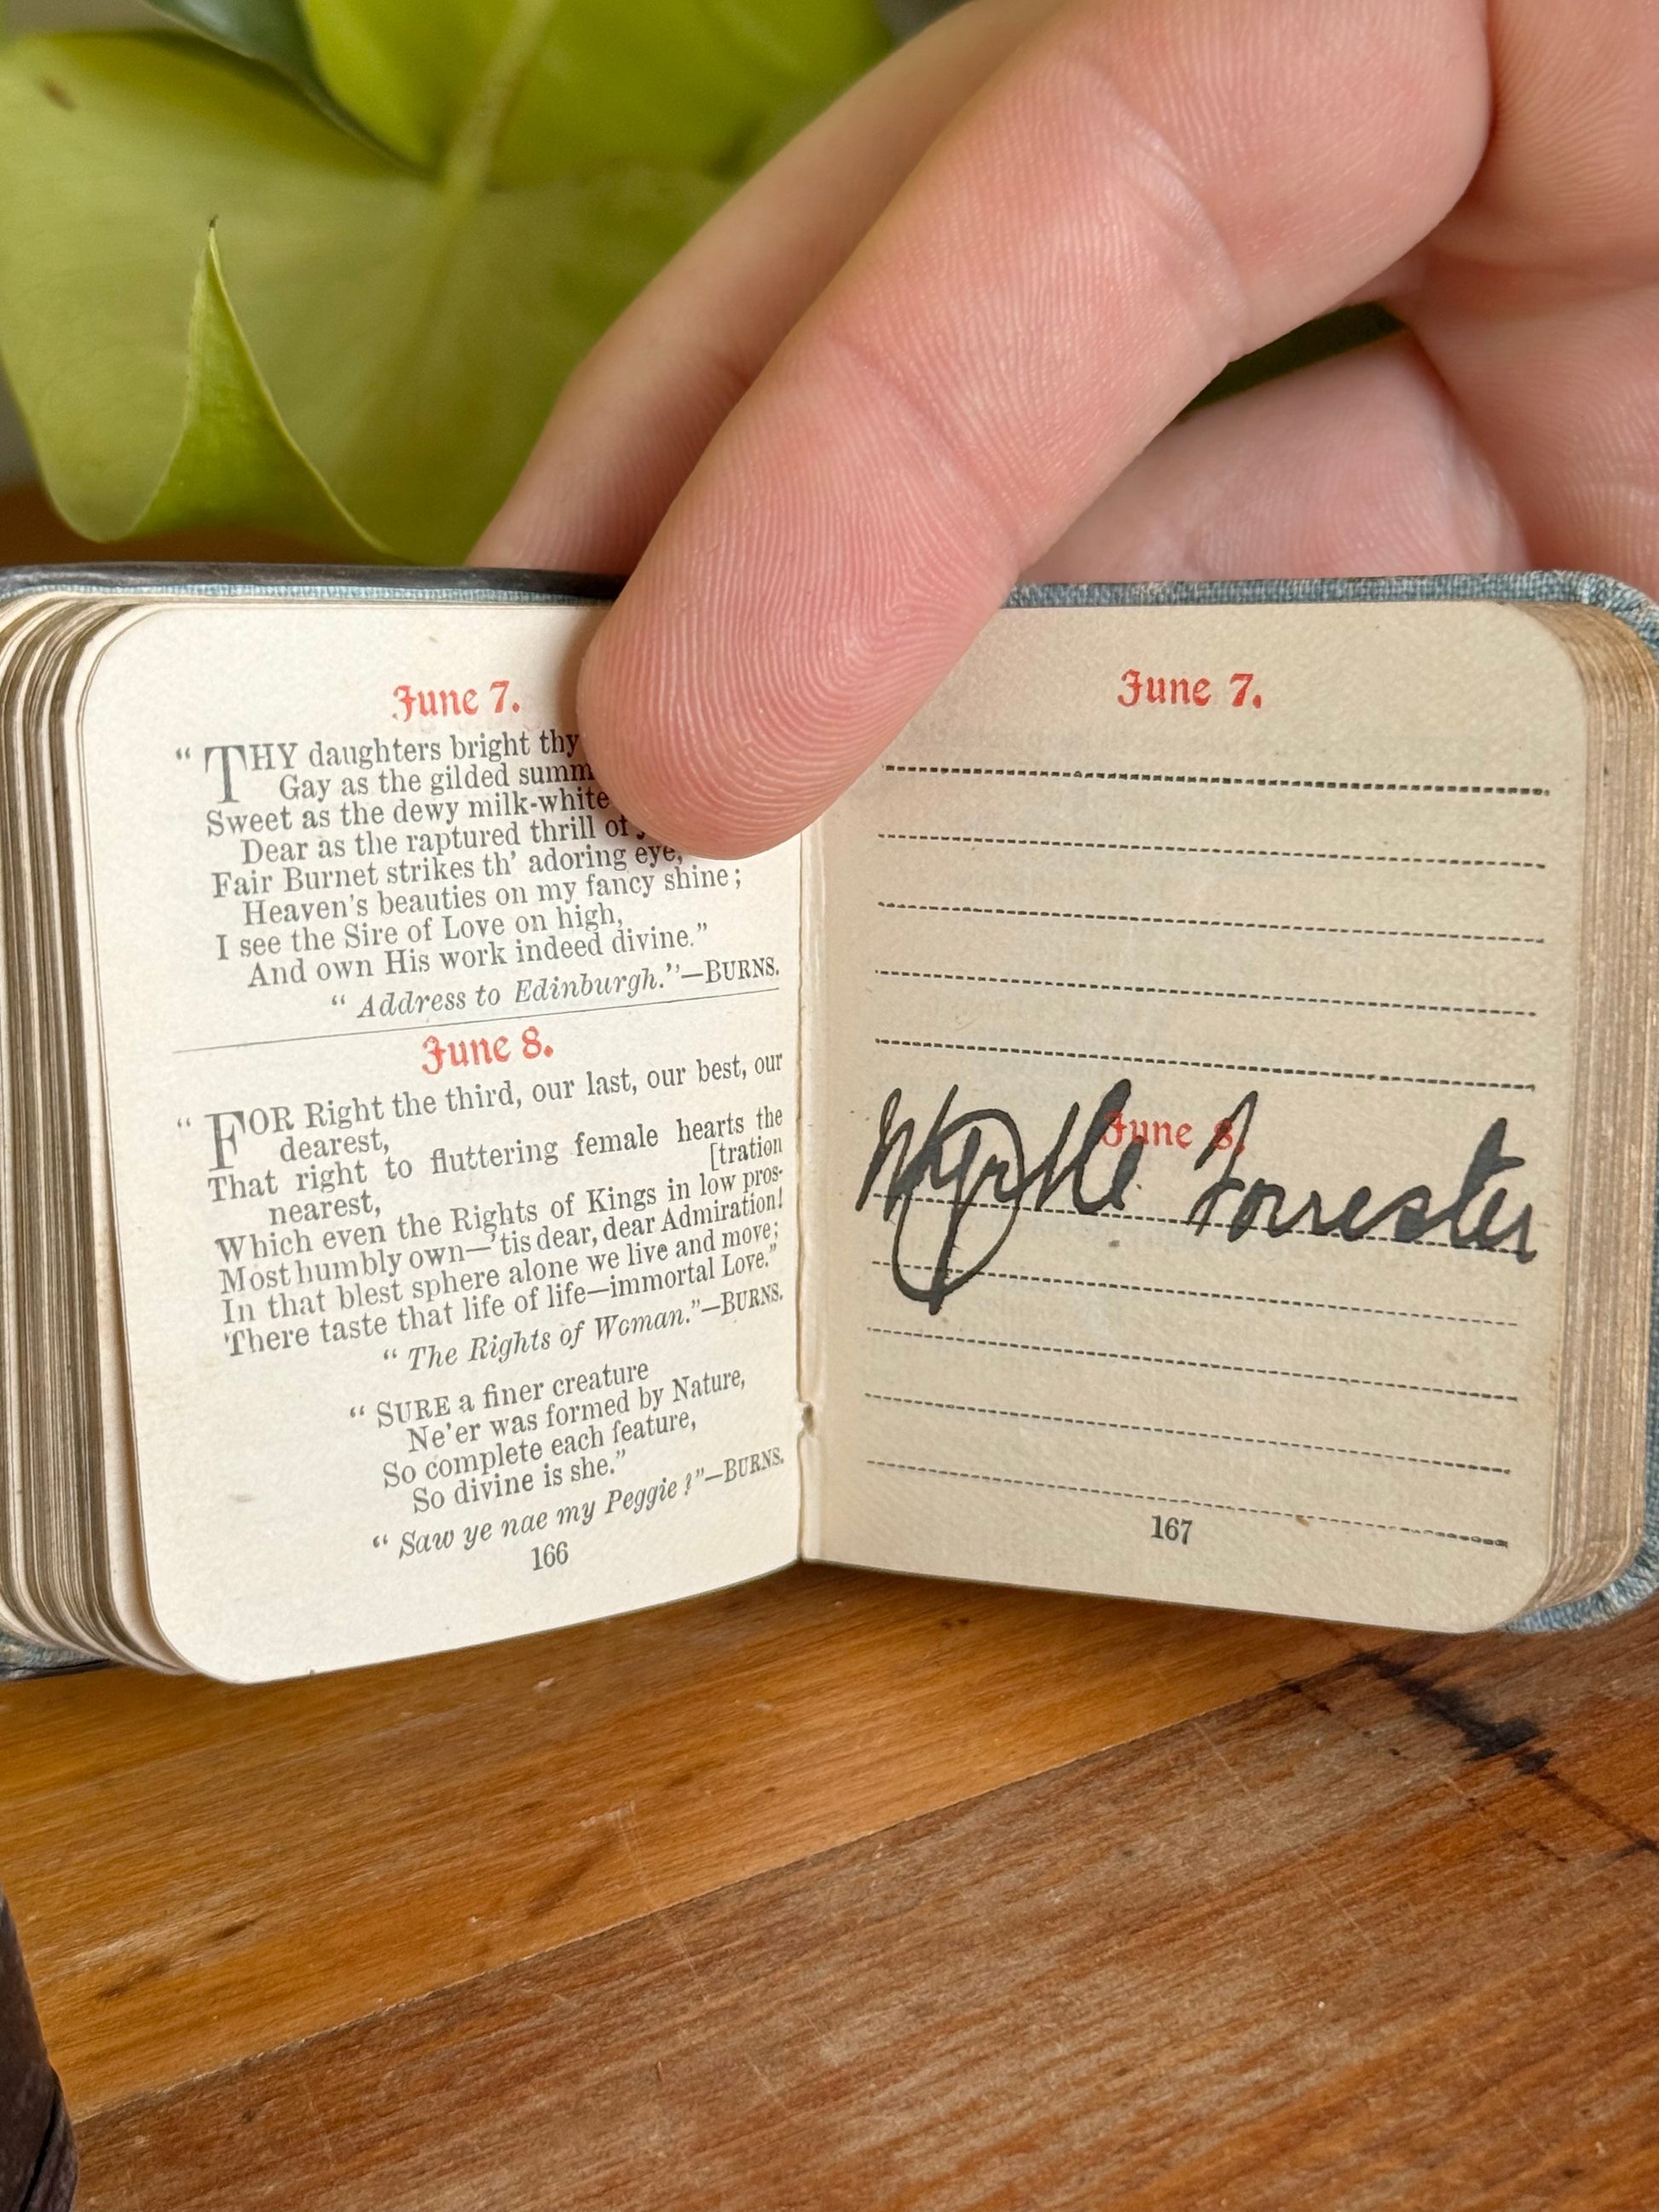 June 7.
“ THY daughters bright thy
Gay as the gilded summ
Sweet as the dewy milk-white
Dear as the raptured thrill of
Fair Burnet strikes th’ adoring eye,
Heaven’s beauties on my fancy shine;
I see the Sire of Love on high,
And own His work indeed divine.”
“ Address to Edinburgh.”—BURNS.
June 8.
“ FOR Right the third, our last, our best, our
dearest,
That right to fluttering female hearts the
nearest, [tration
Which even the Rights of Kings in low pros-
Most humbly own—’tis dear, dear Admiration!
In that blest sphere alone we live and move;
There taste that life of life—immortal Love.”
“ The Rights of Woman.”—BURNS.
“ SURE a finer creature
Ne’er was formed by Nature,
So complete each feature,
So divine is she.”
“ Saw ye nae my Peggie?”—BURNS.
166
June 7.
June 8.
Myrtle Forrester
167